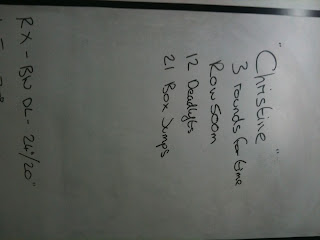 "Christine"
3 rounds for time
Row 500m
12 Deadlifts
21 Box Jumps
RX - BW DL - 24"/20"